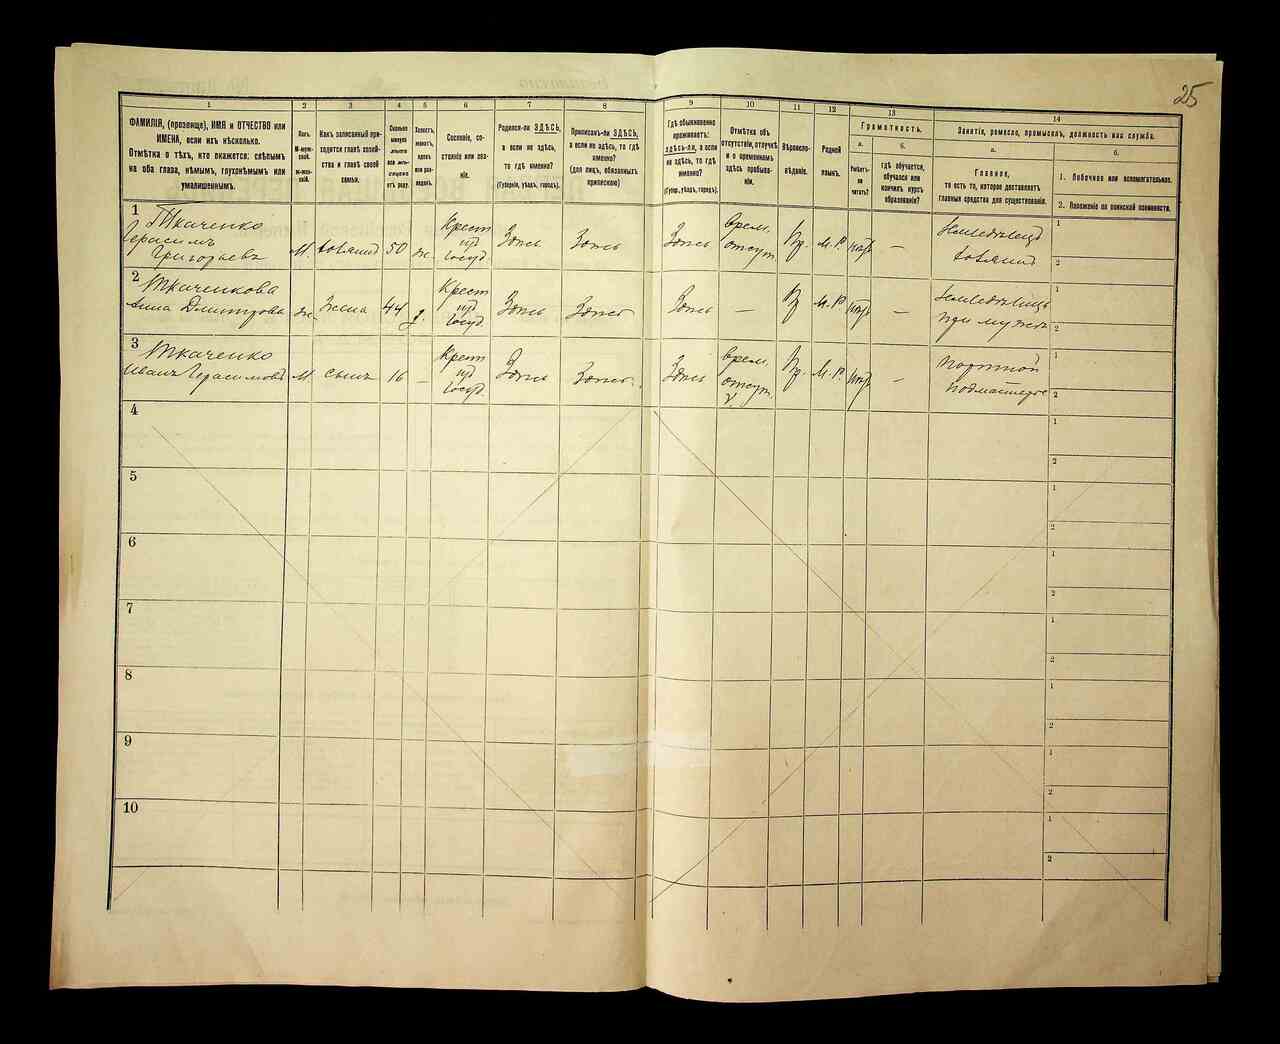 25
1 2 3 4 5 6 7 8 9 10 11 12 13 14
ФАМИЛІЯ, (прозвище), ИМЯ и ОТЧЕСТВО или
ИМЕНА, если ихъ нѣсколько.
Отмѣтка о тѣхъ, кто окажется: слѣпымъ
на оба глаза, нѣмымъ, глухонѣмымъ или
умалишеннымъ.
Полъ.
М-муж-
ской.
Ж-жен-
скій.
Какъ записанный при-
ходится главѣ хозяй-
ства и главѣ своей
семьи.
Сколько
минуло
лѣтъ
отъ роду.
Холостъ,
женатъ,
вдовъ
или раз-
веденъ.
Сословіе, со-
стояніе или зва-
ніе.
Родился-ли ЗДѢСЬ,
а если не здѣсь,
то гдѣ именно?
(Губернія, уѣздъ, городъ).
Приписанъ-ли ЗДѢСЬ,
а если не здѣсь, то гдѣ
именно?
(для лицъ, обязанныхъ
припискою)
Гдѣ обыкновенно
проживаетъ:
здѣсь-ли, а если
не здѣсь, то гдѣ
именно?
(Губер., уѣздъ, городъ).
Отмѣтка объ
отсутствіи, отлучкѣ
и о временномъ
здѣсь пребыва-
ніи.
Вѣроиспо-
вѣданіе.
Родной
языкъ.
Грамотность.
а.
Умѣетъ-
ли
читать?
б.
гдѣ обучается,
обучался или
кончилъ курсъ
образованія?
Занятіе, ремесло, промыселъ, должность или служба.
а.
Главное,
то есть то, которое доставляетъ
главныя средства для существованія.
б.
1. Побочное или вспомогательное.
2. Положеніе по воинской повинности.
1 Ткаченко
Герасимъ
Григорьевъ
М. хозяинъ 50 ж. Крест. изъ Госуд. Здѣсь Здѣсь Здѣсь врем. отсут. Пр. М. Р. —
Земледѣлецъ
хозяинъ
1
2
2 Ткаченкова
Анна Дмитрова
ж. Жена 44 Крест изъ Госуд. Здѣсь Здѣсь Здѣсь — М. Р. —
Земледѣлецъ
при мужѣ
1
2
3 Ткаченко
Иванъ Герасимовъ
М сынъ 16 — Крест изъ Госуд. Здѣсь Здѣсь Здѣсь врем. отсут. Пр. М. Р. —
Портной
1
2
4
1
2
5
1
2
6
1
2
7
1
2
8
1
2
9
1
2
10
1
2